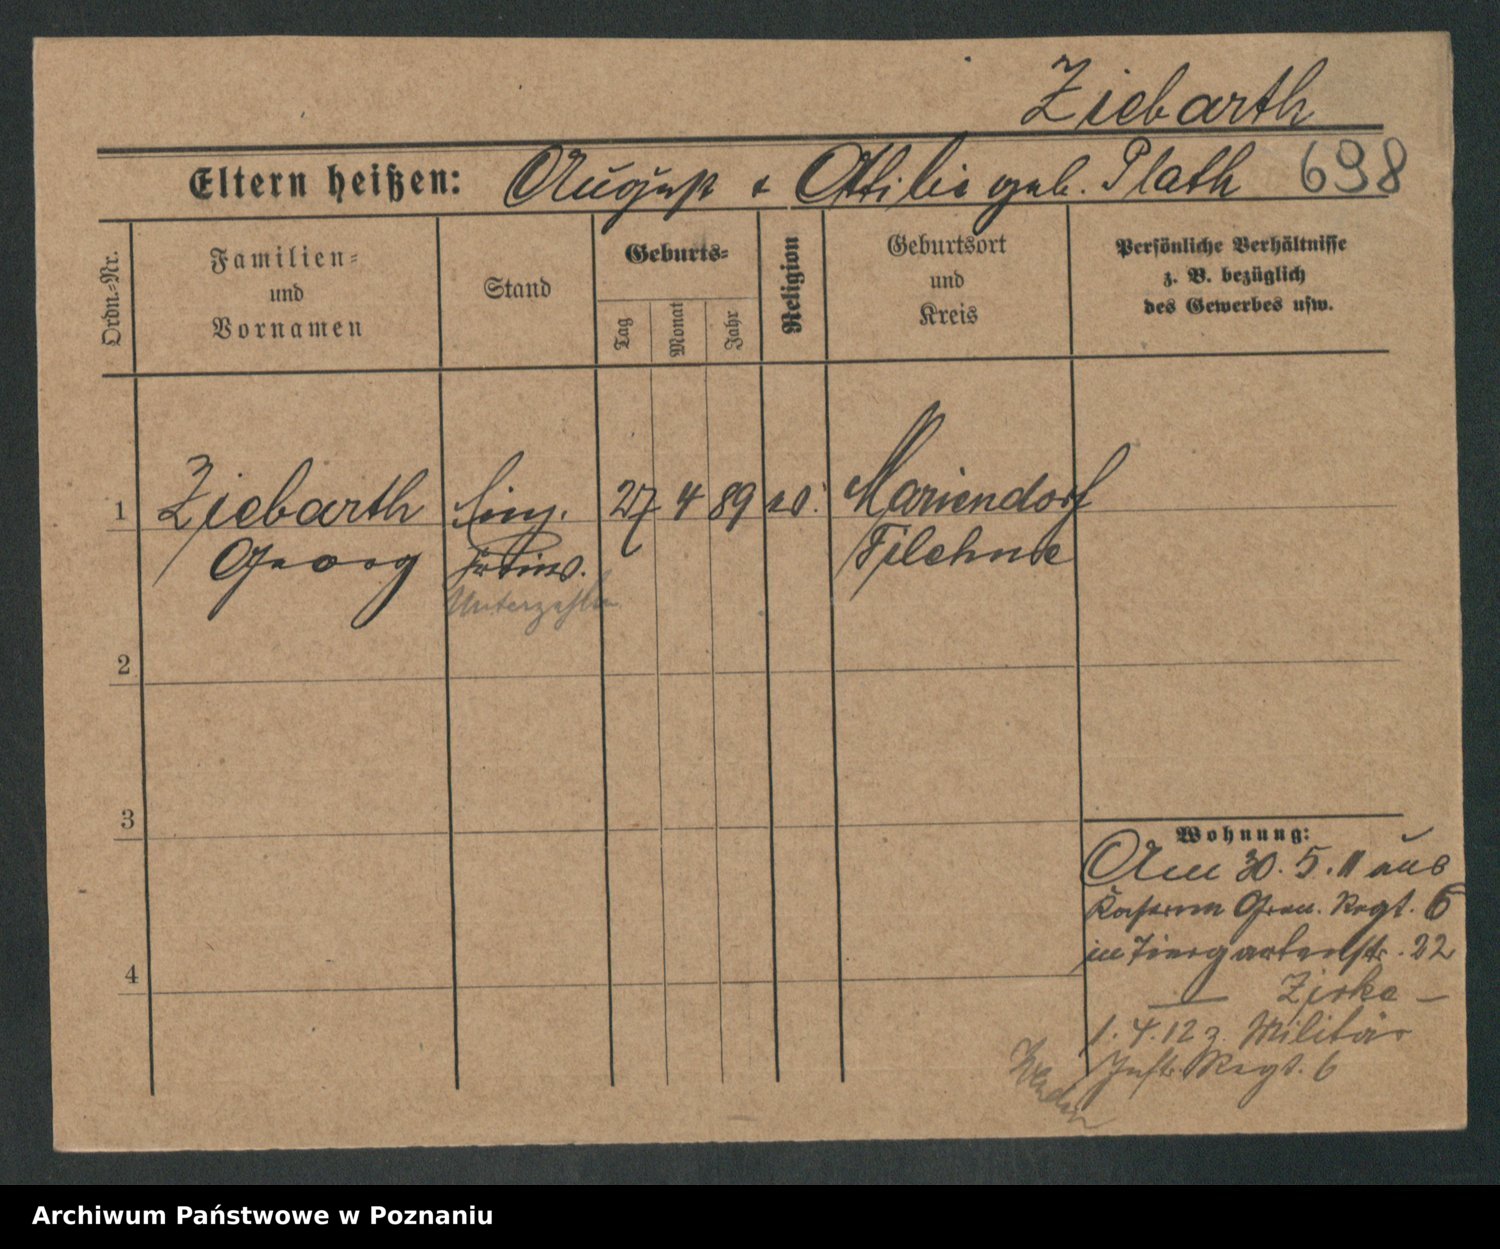 Ziebarth
Eltern heißen: August & Ottilie geb. Plath 698
Ordn.-Nr.
Familien-
und
Vornamen
Stand
Geburts-
Tag
Monat
Jahr
Religion
Geburtsort
und
Kreis
Persönliche Verhältnisse
z. B. bezüglich
des Gewerbes usw.
1 Ziebarth 27 4 89 Mariendorf
Georg Filehne
2
3
4
Wohnung:
Am 30. 5. 11 aus
Kaserne Gren. Regt. 6
in Tiergartenstr. 22
— Zirke —
1. 4. 12 z. Militär
Inftr. Regt. 6
Archiwum Państwowe w Poznaniu